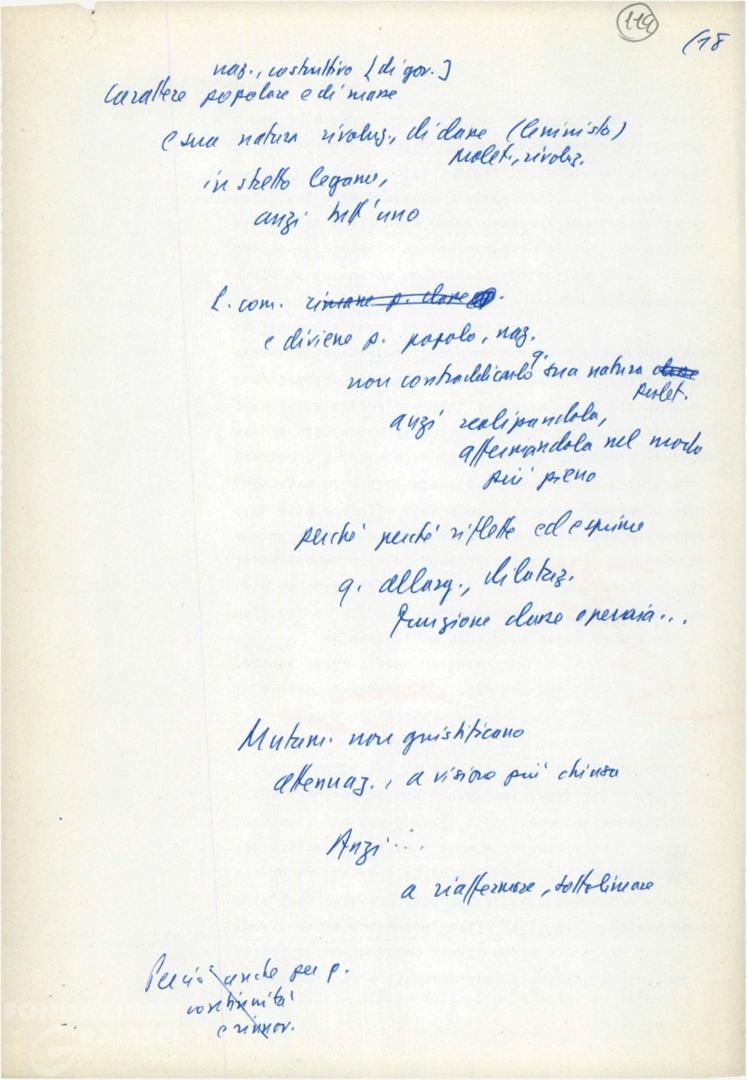 119
(18
naz., costruttivo [di gov.]
Carattere popolare e di masse
e sua natura rivoluz., di classe (leninista)
prolet., rivoluz.
in stretto legame,
anzi tutt'uno
P. com. rimane p. classe
e diviene p. popolo, naz.
non contraddicendo q. sua natura classe
prolet.
anzi realizzandola,
affermandola nel modo
più pieno
perché perché riflette ed esprime
q. allarg., dilataz.
funzione classe operaia...
Mutam. non giustificano
attenuaz., o visione più chiusa
Anzi...
a riaffermare, sottolineare
Perciò anche per p.
continuità
e rinnov.
FONDAZIONE
GRAMSCI